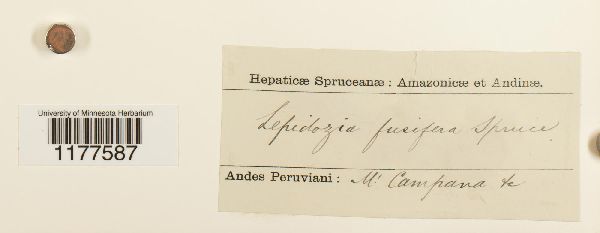 Hepaticæ Spruceanæ: Amazonicæ et Andinæ.
University of Minnesota Herbarium
1177587
Lepidozia fusifera Spruce.
Andes Peruviani: Mt Campana &